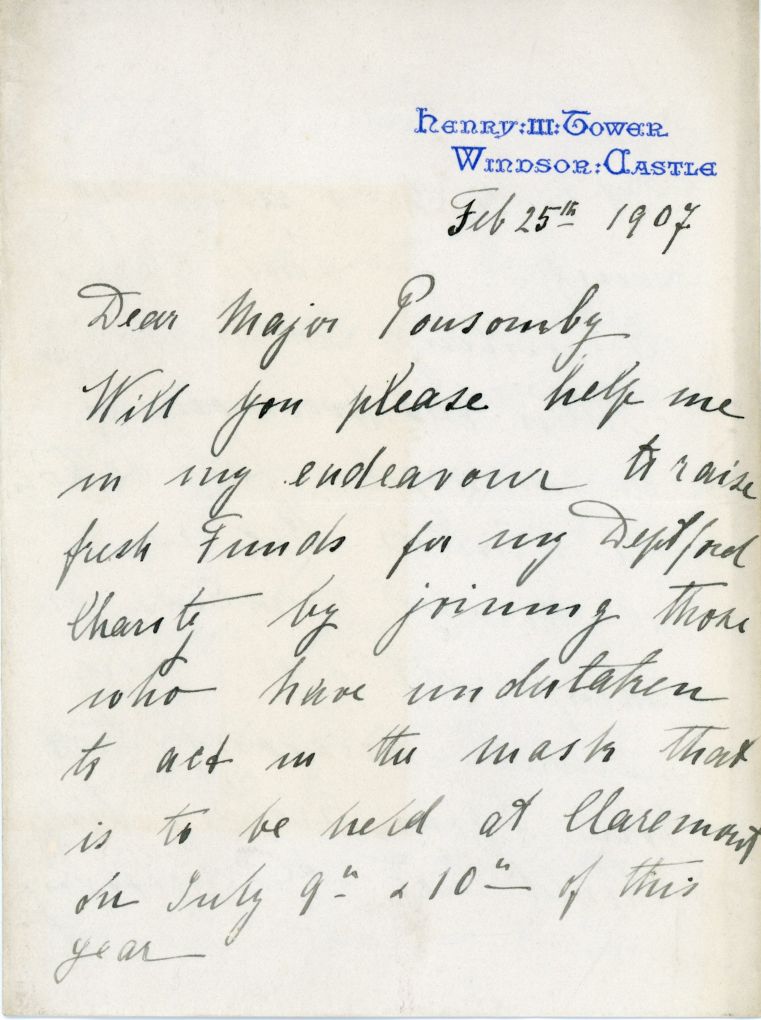 Henry:III:Tower
Windsor:Castle
Feb 25th 1907
Dear Major Ponsomby
Will you please help me
in my endeavour to raise
fresh Funds for my Deptford
Charity by joining those
who have undertaken
to act in the mask that
is to be held at Claremont
on July 9th & 10th of this
year